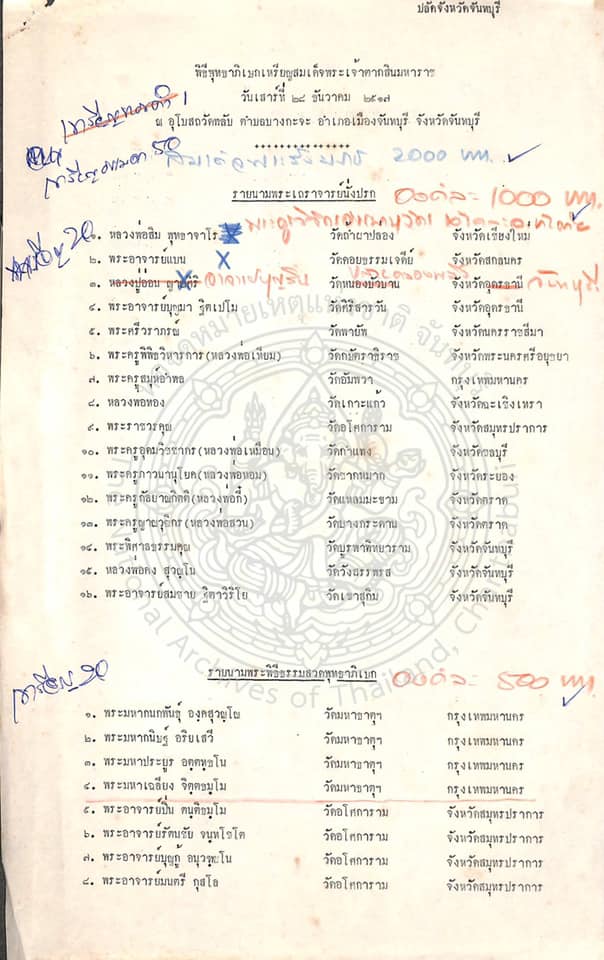 ปลัดจังหวัดจันทบุรี
พิธีพุทธาภิเษกเหรียญสมเด็จพระเจ้าตากสินมหาราช
วันเสาร์ที่ ๒๘ ธันวาคม ๒๕๑๗
ณ อุโบสถวัดพลับ ตำบลบางกะจะ อำเภอเมืองจันทบุรี จังหวัดจันทบุรี
เหรียญทองคำ 1
เหรียญ 50
สมเด็จพระสังฆราช 2000 บาท.
รายนามพระเถราจารย์นั่งปรก องค์ละ 1000 บาท.
เหรียญ 20
๑. หลวงพ่อสิม พุทธาจาโร วัดถ้ำผาปล่อง จังหวัดเชียงใหม่
๒. พระอาจารย์แบน X วัดดอยธรรมเจดีย์ จังหวัดสกลนคร
๓. หลวงปู่อ่อน ญาณสิริ วัดหนองบัวบาน จังหวัดอุดรธานี จันทบุรี
๔. พระอาจารย์บุญมา ฐิตเปโม วัดศิริสารวัน จังหวัดอุดรธานี
๕. พระศรีวราภรณ์ วัดพายัพ จังหวัดนครราชสีมา
๖. พระครูพิพิธวิหารการ(หลวงพ่อเทียม) วัดกษัตราธิราช จังหวัดพระนครศรีอยุธยา
๗. พระครูสมุห์อำพล วัดอัมพวา กรุงเทพมหานคร
๘. หลวงพ่อทอง วัดเกาะแก้ว จังหวัดฉะเชิงเทรา
๙. พระราชวรคุณ วัดอโศการาม จังหวัดสมุทรปราการ
๑๐. พระครูอุดมวิชชากร(หลวงพ่อเหมือน) วัดกำแพง จังหวัดชลบุรี
๑๑. พระครูภาวนานุโยค(หลวงพ่อหอม) วัดชากหมาก จังหวัดระยอง
๑๒. พระครูกัลยาณกิตติ(หลวงพ่อกี๋) วัดแหลมมะขาม จังหวัดตราด
๑๓. พระครูญาณวุฒิกร(หลวงพ่อสวน) วัดบางกระดาน จังหวัดตราด
๑๔. พระพิศาลธรรมคุณ วัดบูรพาพิทยาราม จังหวัดจันทบุรี
๑๕. หลวงพ่อคง สุวณฺโน วัดวังสรรพรส จังหวัดจันทบุรี
๑๖. พระอาจารย์สมชาย ฐิตวิริโย วัดเขาสุกิม จังหวัดจันทบุรี
เหรียญ 20
รายนามพระพิธีธรรมสวดพุทธาภิเษก องค์ละ 500 บาท.
๑. พระมหากนกพันธุ์ องฺคสุวณฺโณ วัดมหาธาตุฯ กรุงเทพมหานคร
๒. พระมหากนิษฐ์ อริยเสวี วัดมหาธาตุฯ กรุงเทพมหานคร
๓. พระมหาประยูร วัดมหาธาตุฯ กรุงเทพมหานคร
๔. พระมหาเฉลียง จิตฺตธมฺโม วัดมหาธาตุฯ กรุงเทพมหานคร
๕. พระอาจารย์ปิ่น ตนฺติธมฺโม วัดอโศการาม จังหวัดสมุทรปราการ
๖. พระอาจารย์รัตนชัย จนฺทโชโต วัดอโศการาม จังหวัดสมุทรปราการ
๗. พระอาจารย์บุญกู้ อนุวฑฺฒโน วัดอโศการาม จังหวัดสมุทรปราการ
๘. พระอาจารย์มนตรี กุสโล วัดอโศการาม จังหวัดสมุทรปราการ
หอจดหมายเหตุแห่งชาติ จันทบุรี
National Archives of Thailand, Chanthaburi